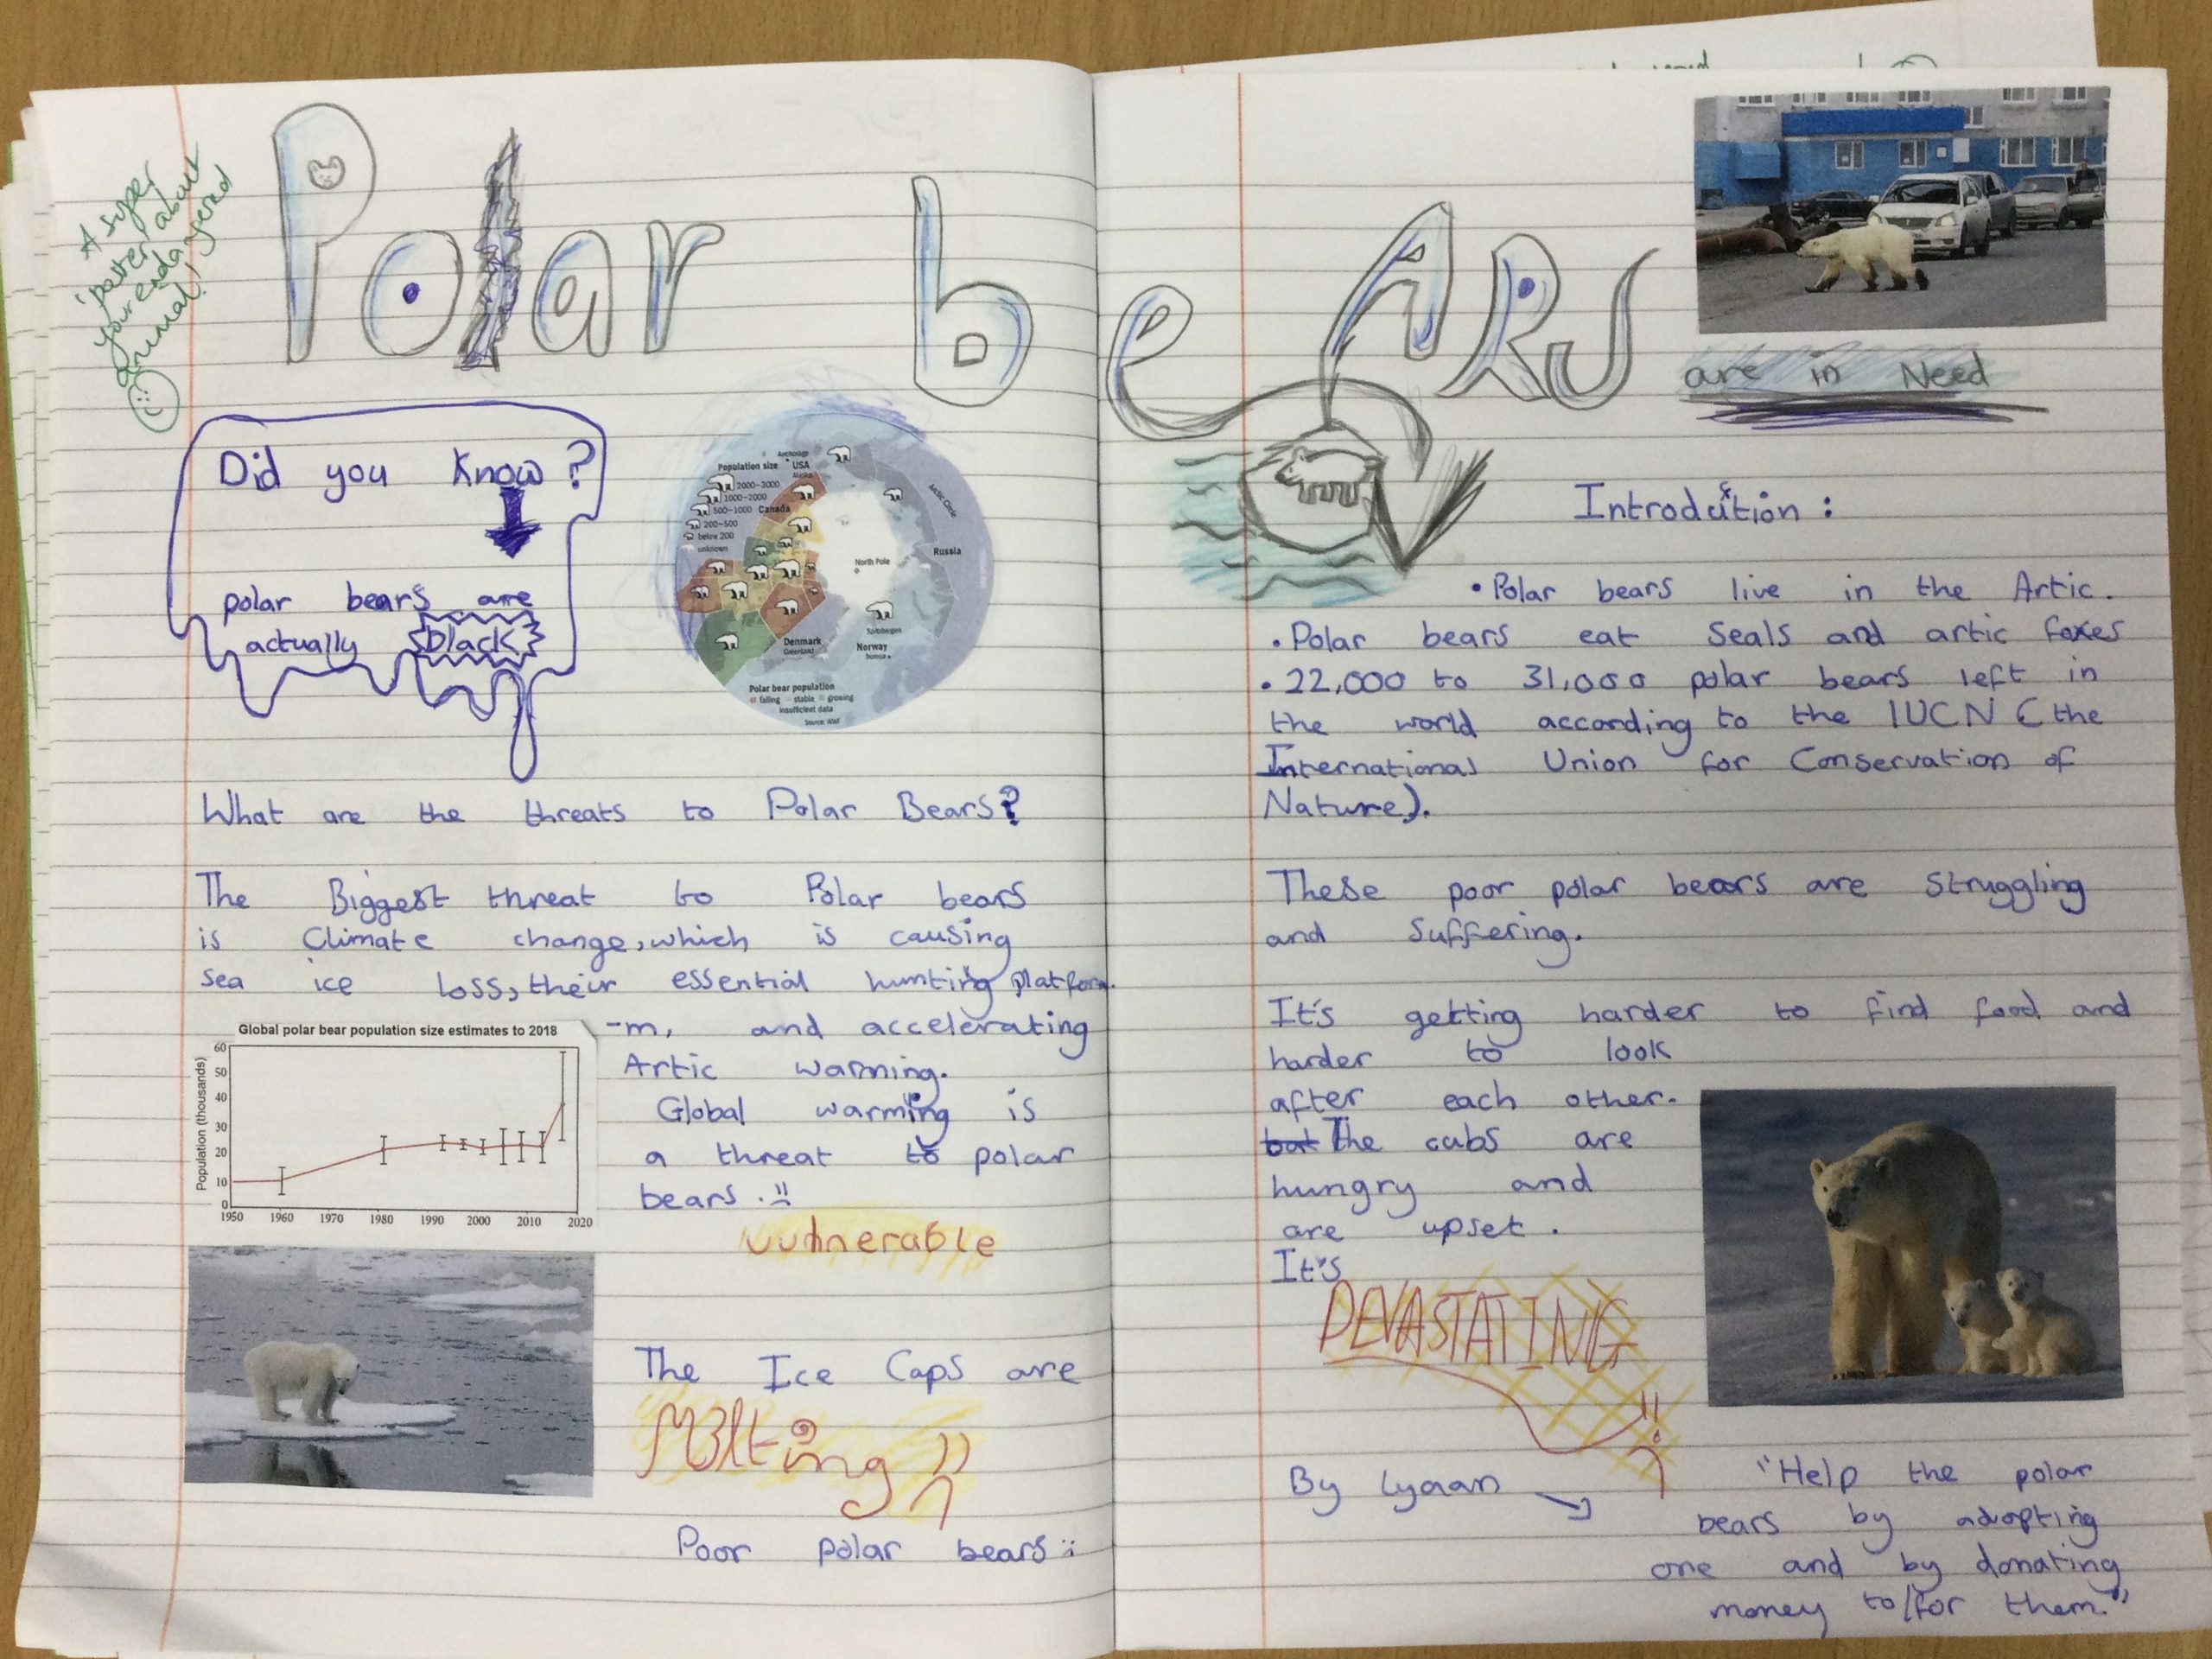 A super
poster about
your endangered
animal!
Polar beARs
are in Need
Did you know?
polar bears are
actually black
Population size
2000-3000
1000-2000
500-1000
200-500
below 200
unknown
Anchorage
USA
Alaska
Canada
Arctic Circle
Russia
North Pole
Spitsbergen
Denmark
Greenland
Norway
Polar bear population
falling stable growing
insufficient data
Source: WWF
What are the threats to Polar Bears?
The Biggest threat to Polar bears
is Climate change, which is causing
sea ice loss, their essential hunting platfor
-m, and accelerating
Artic warming.
Global warming is
a threat to polar
bears.
Global polar bear population size estimates to 2018
Population (thousands)
60
50
40
30
20
10
0
1950 1960 1970 1980 1990 2000 2010 2020
vulnerable
The Ice Caps are
Melting
Poor polar bears
Introduction:
• Polar bears live in the Artic.
• Polar bears eat seals and artic foxes
• 22,000 to 31,000 polar bears left in
the world according to the IUCN (the
International Union for Conservation of
Nature).
These poor polar bears are struggling
and suffering.
It's getting harder to find food and
harder to look
after each other.
but The cubs are
hungry and
are upset.
It's
DEVASTATING
By Lyaan
"Help the polar
bears by adopting
one and by donating
money to/for them."